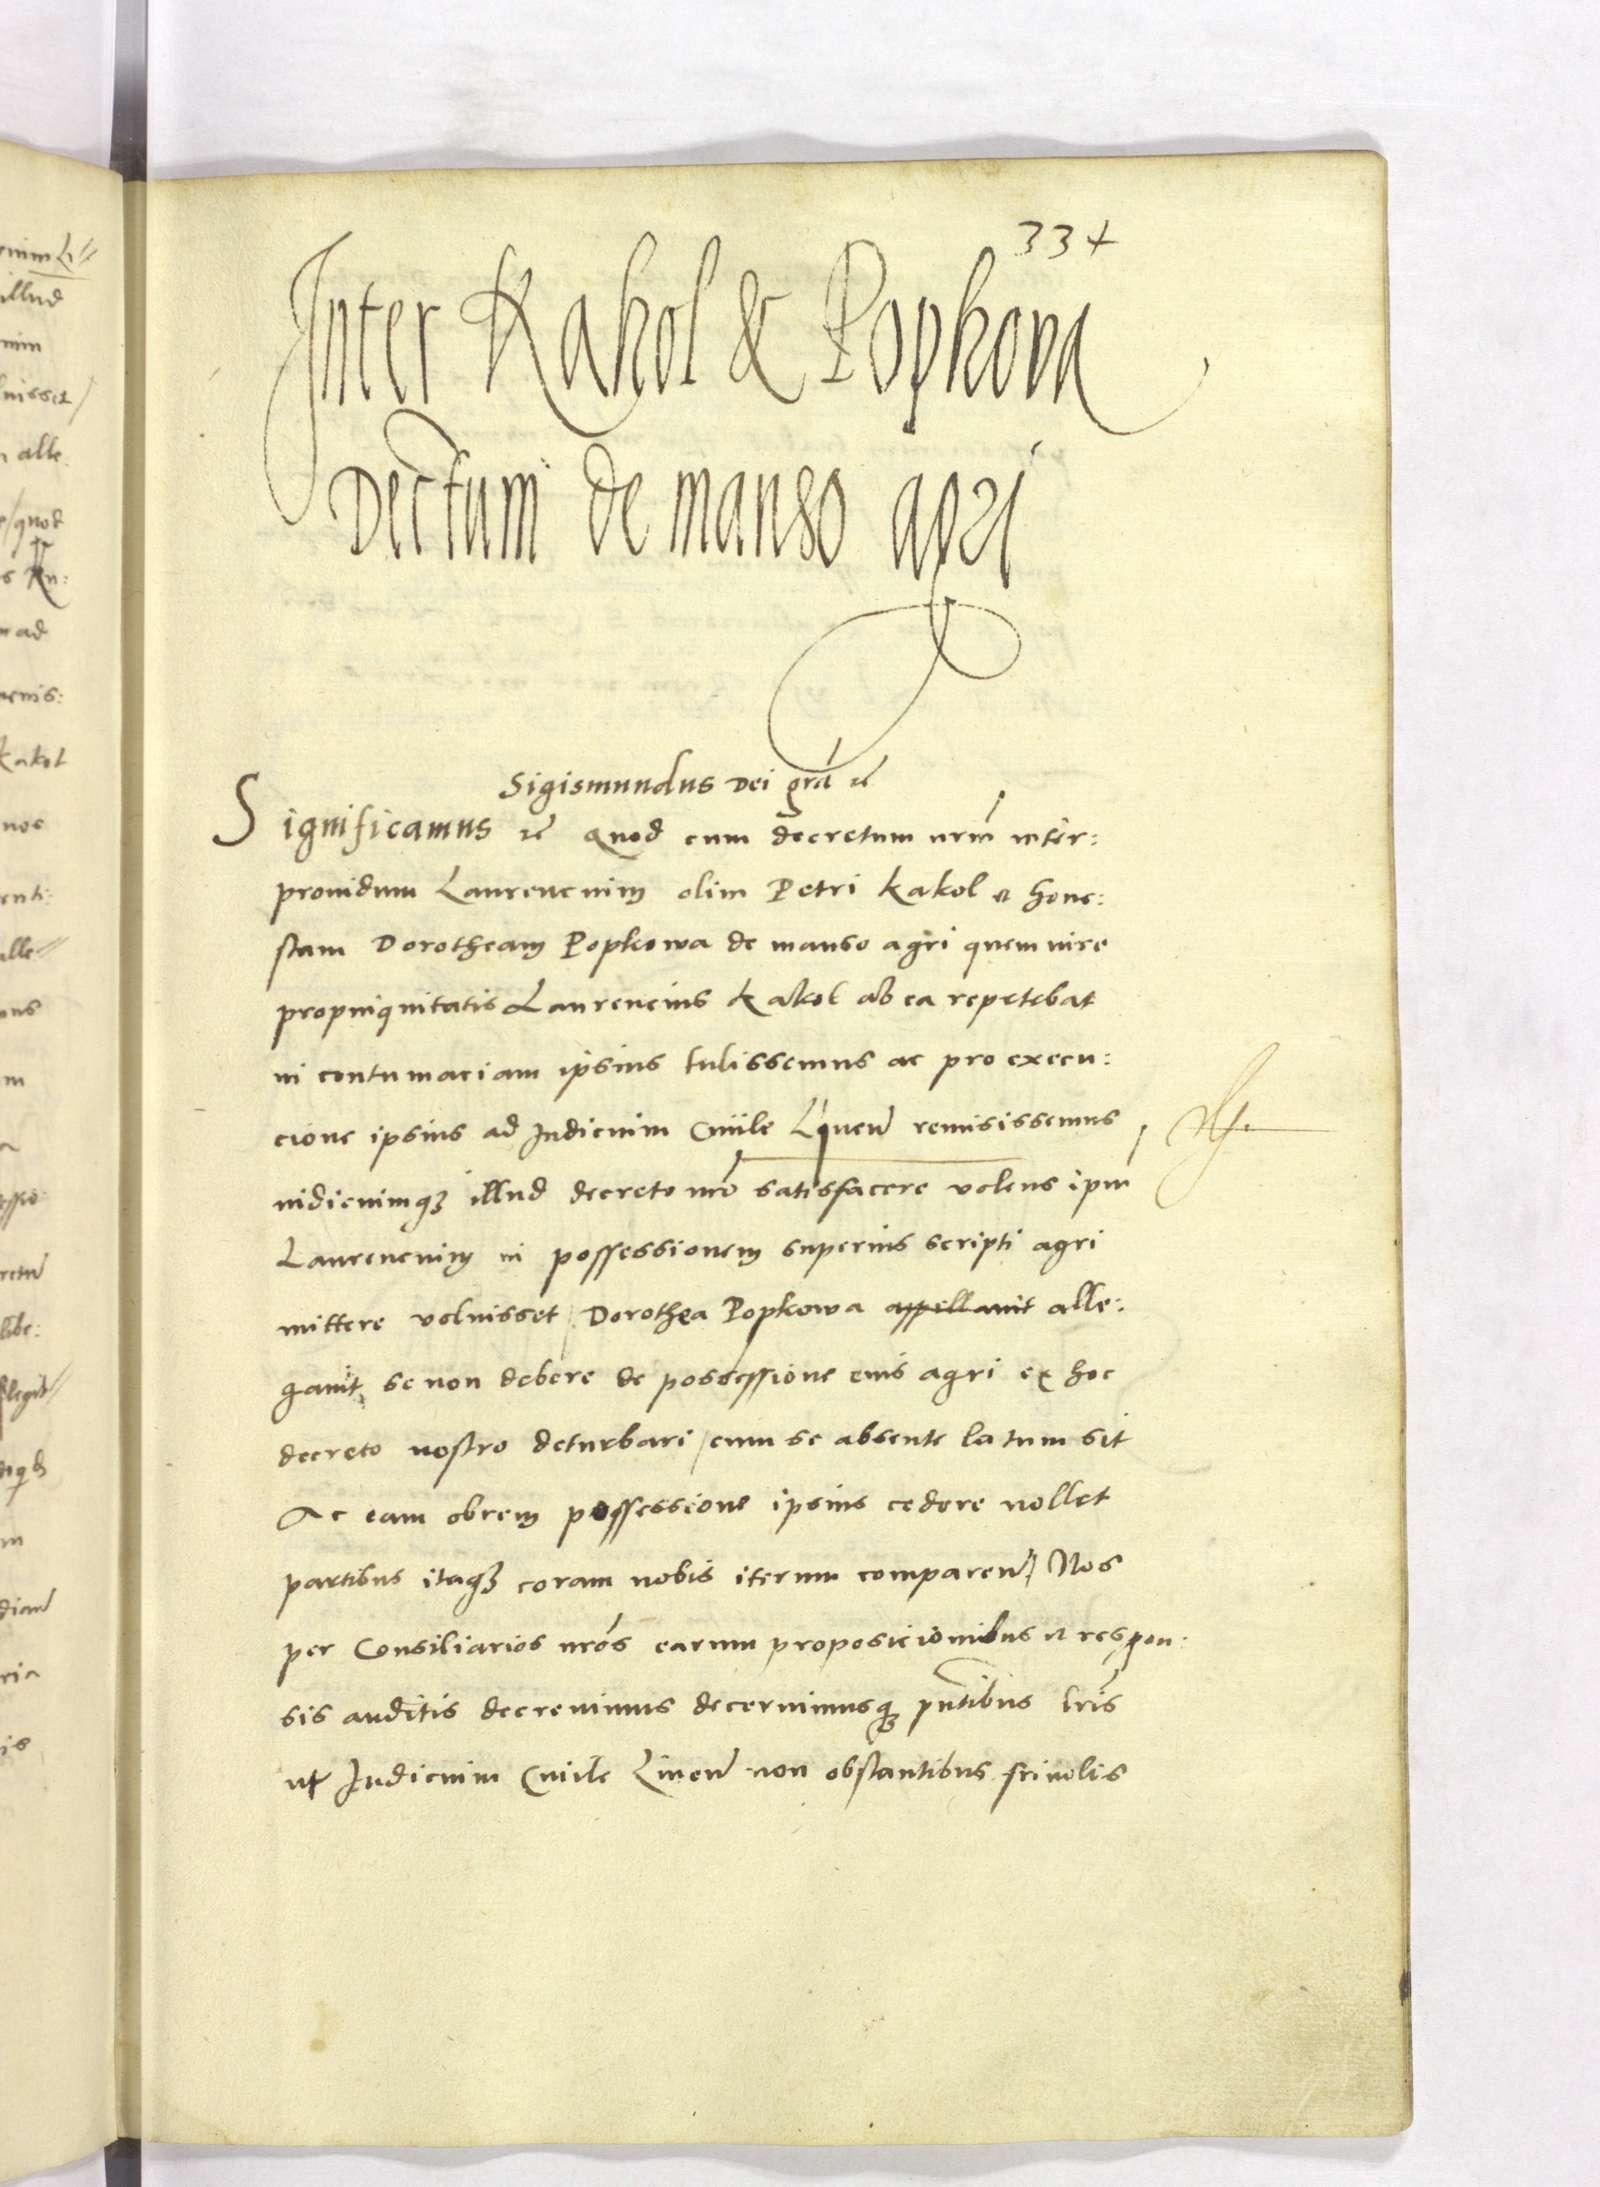 334
Inter Kakol & Popkova
Decretum de manso agri
Sigismundus Dei gra etc
Significamus etc Quod cum decretum nrm inter:
providum Laurencium olim Petri Kakol et hone:
stam Dorotheam Popkowa de manso agri quem iure
propinquitatis Laurencius Kakol ab ea repetebat
in contumaciam ipsius tulissemus ac pro execu:
cione ipsius ad Iudicium Civile remisissemus
iudiciumq illud decreto nro satisfacere volens ipm
Laurencium in possessionem superius scripti agri
mittere voluisset / Dorothea Popkowa appellavit alle:
gavit se non debere de possessione eius agri ex hoc
decreto nostro deturbari / cum se absente latum sit
Ac eam obrem possessione ipsius cedere nollet
partibus itaq coram nobis iterum comparen / Nos
per Consiliarios nros earum proposicionibus et respon:
sis auditis decrevimus decernimusq pntibus lris
ut Iudicium Civile non obstantibus frivolis